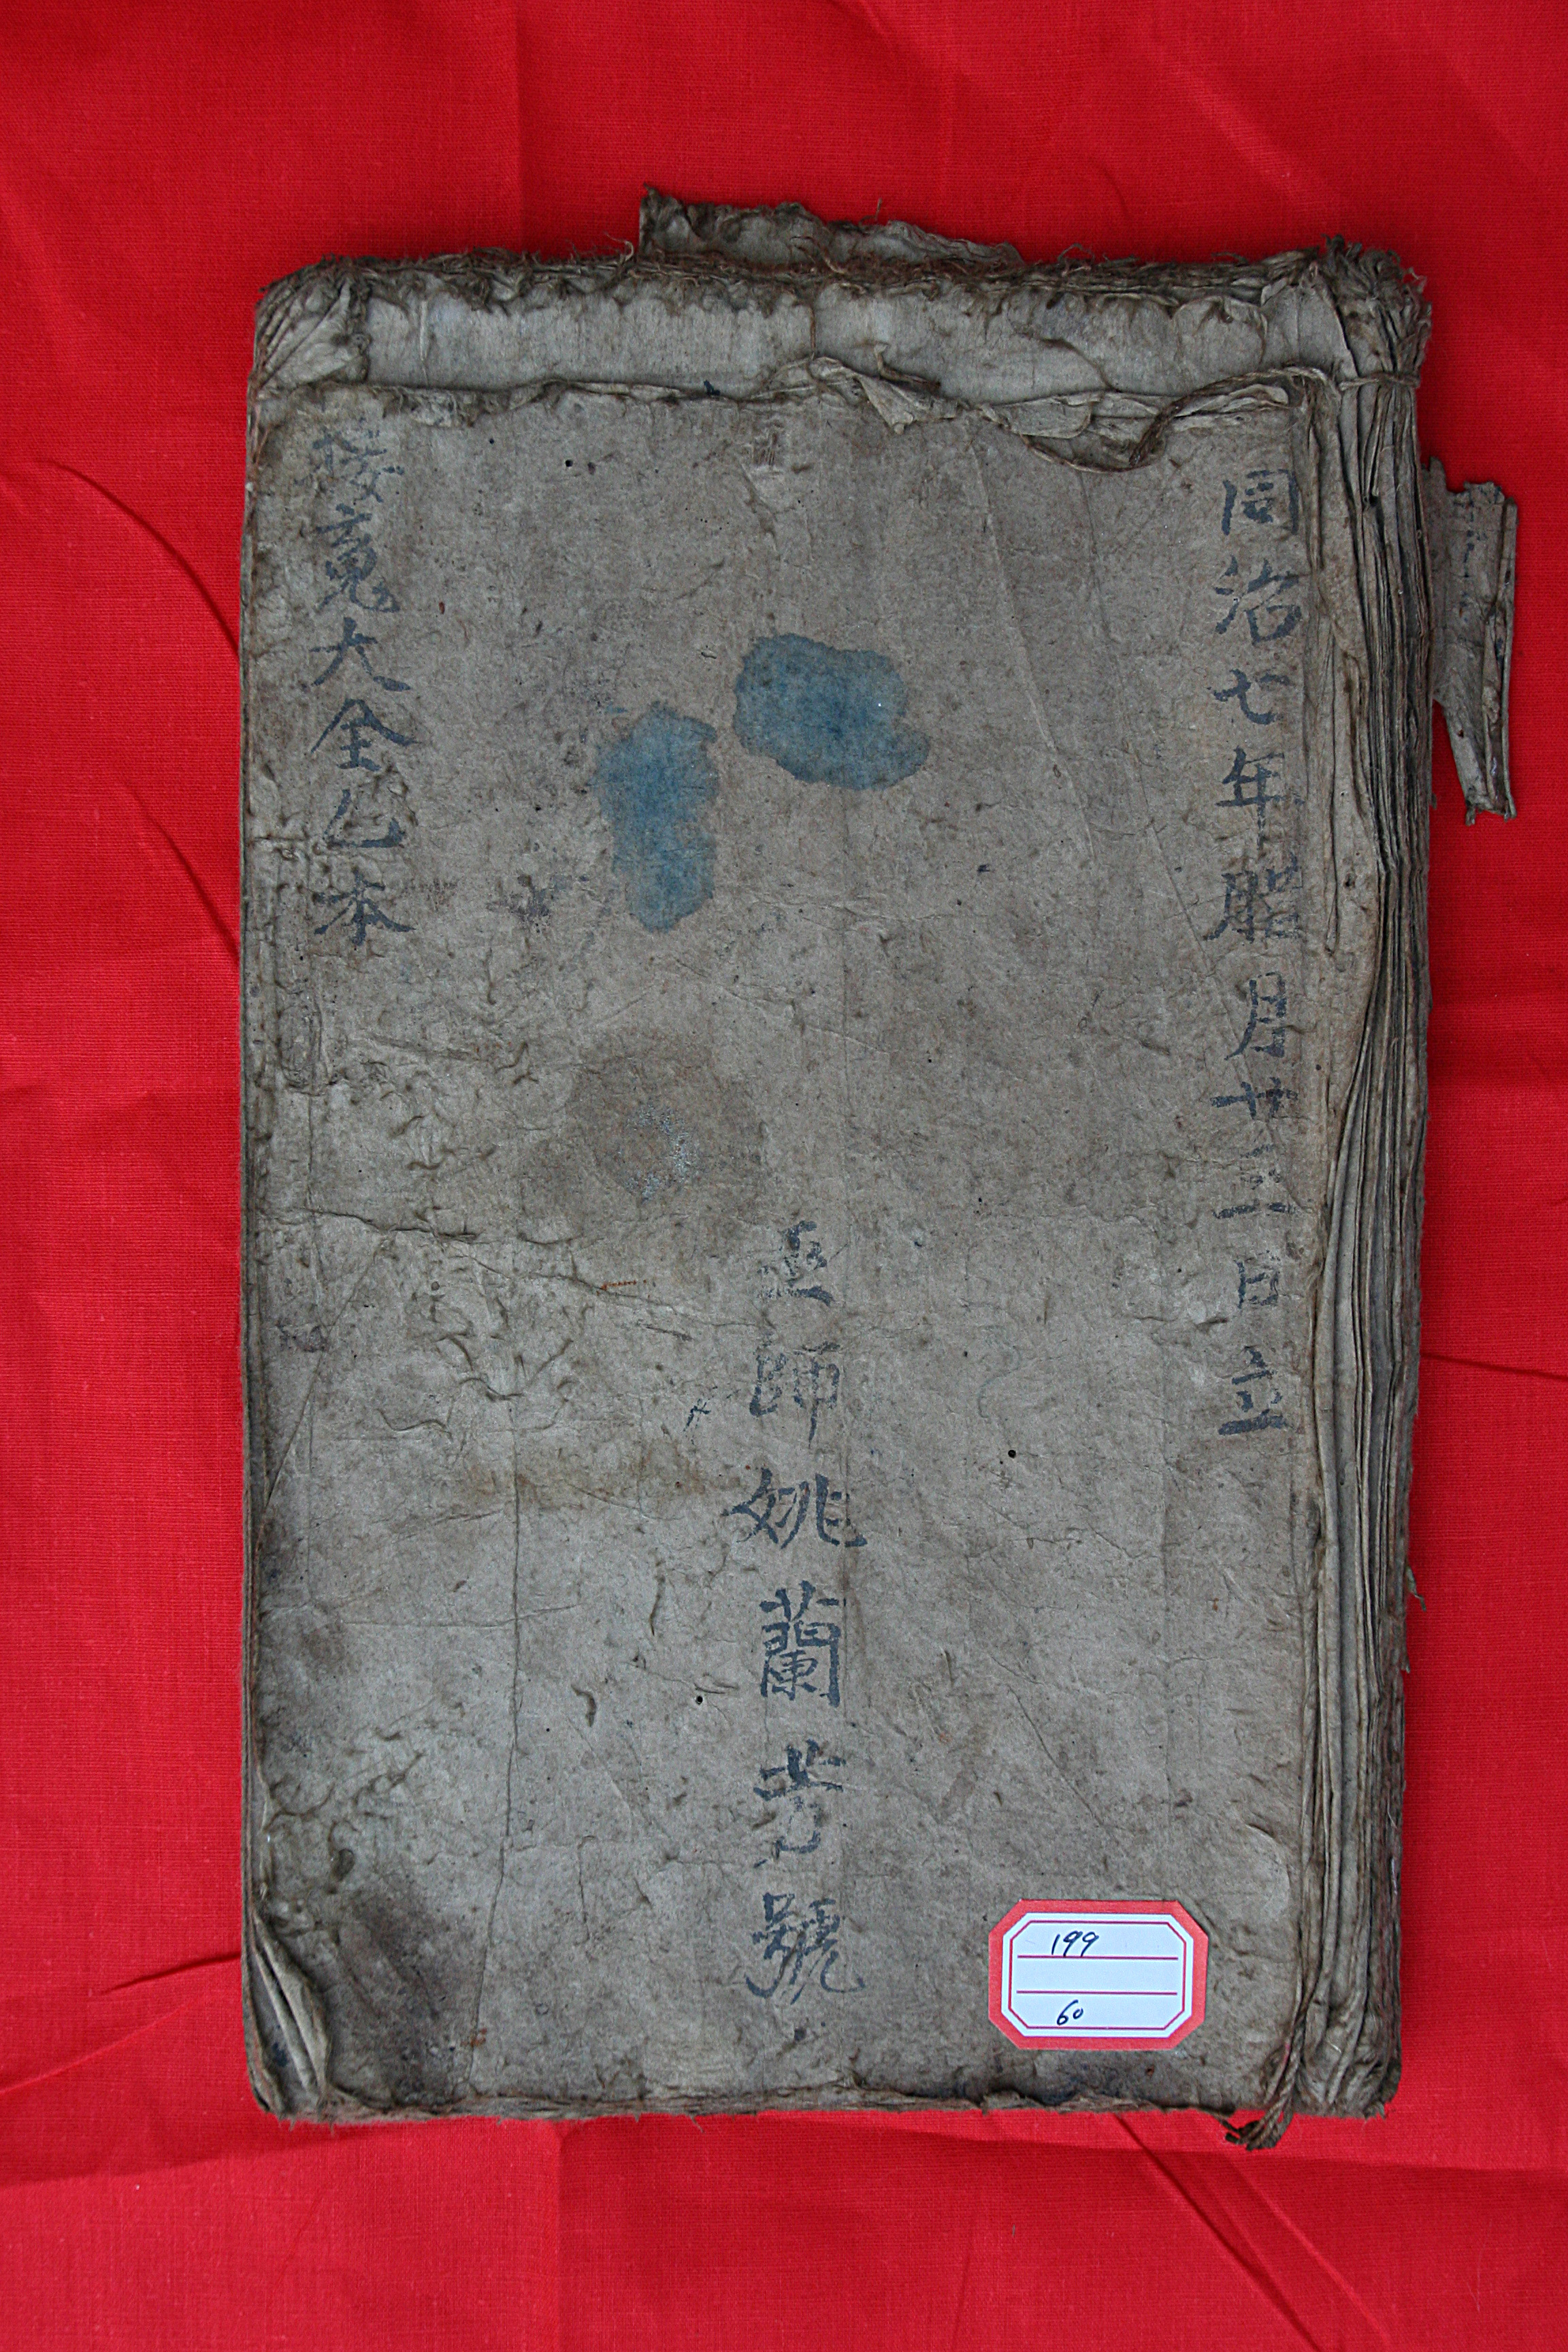 同治七年腊月廿三日立
巫師姚蘭芳號
接竜大全乙本
199
60